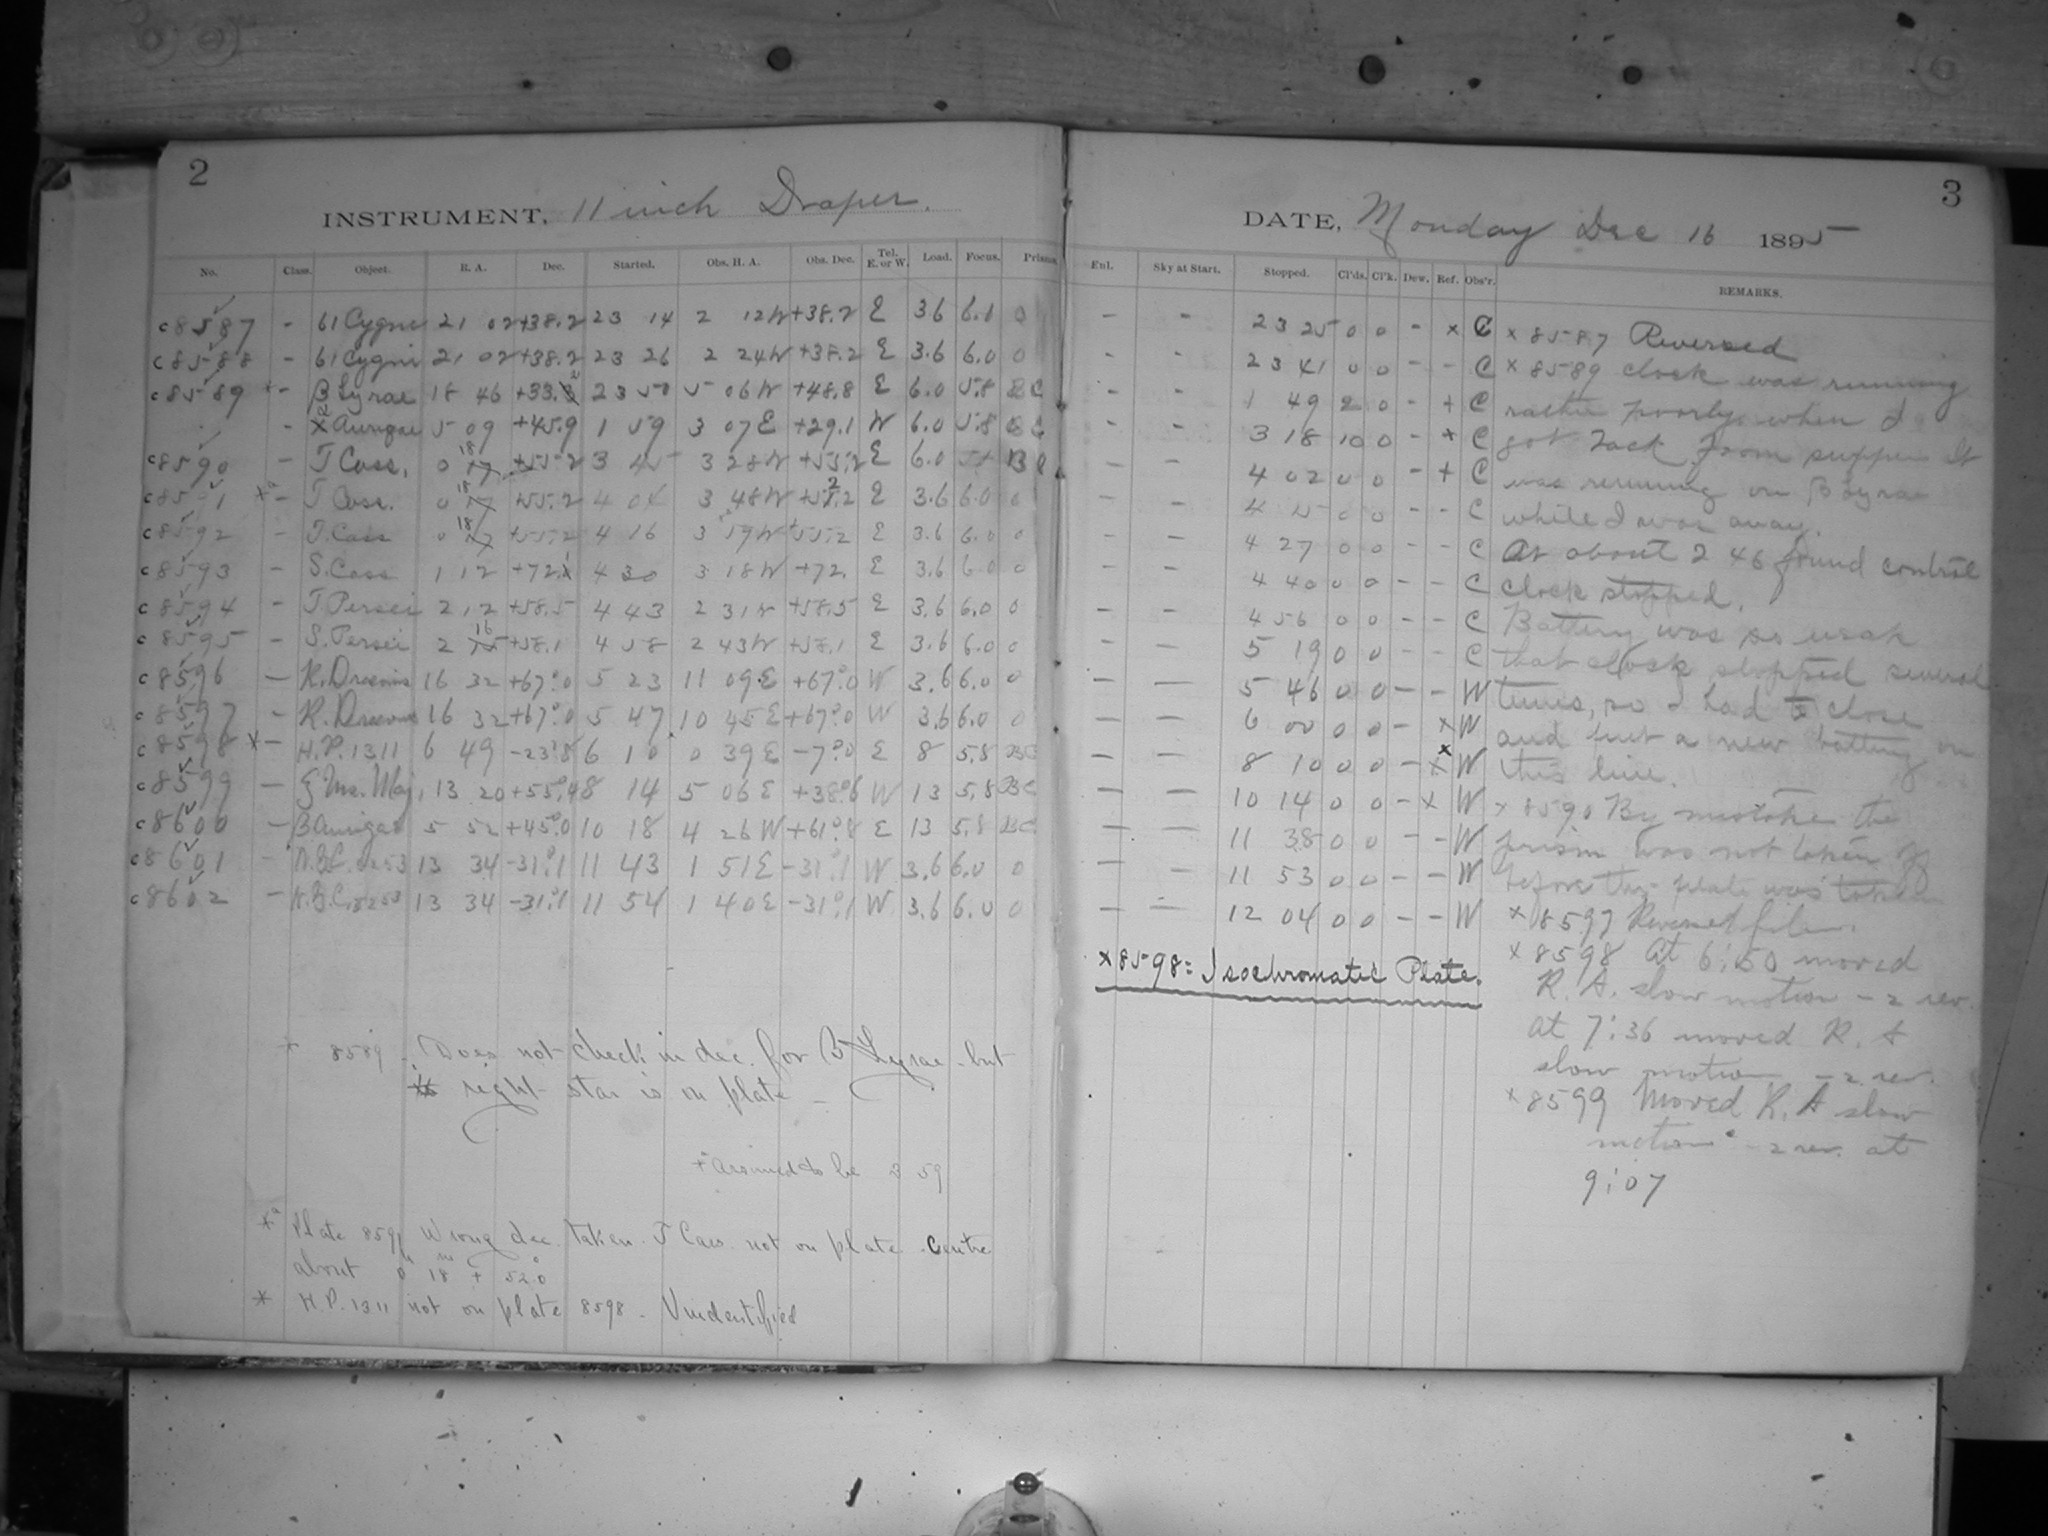 2
INSTRUMENT, 11 inch Draper.
No. Class. Object. R. A. Dec. Started. Obs. H. A. Obs. Dec. Tel. E. or W. Load. Focus. Prisms
c8587 - 61 Cygni 21 02 +38.2 23 14 2 12W +38.2 E 3.6 6.1 0
c8588 - 61 Cygni 21 02 +38.2 23 26 2 24W +38.2 E 3.6 6.0 0
c8589 x - β Lyrae 18 46 +33.2 23 50 5 06W +48.8 E 6.0 5.8 BC
- Aurigae 5 09 +45.9 1 59 3 07E +29.1 W 6.0 5.8
c8590 - T Cass. 0 18 +55.2 3 45 3 28W E 6.0 B
c8591 x - T Cass. 0 18 +55.2 4 3 48W E 3.6 6.0 0
c8592 - T. Cass 0 18 +55.2 4 16 3 W +55.2 E 3.6 6.0 0
c8593 - S. Cass 1 12 +72.1 4 30 3 18W +72. E 3.6 6.0 0
c8594 - T. Persei 2 12 +58.5 4 43 2 31W +58.5 E 3.6 6.0 0
c8595 - S. Persei 2 16 +58.1 4 58 2 43W +58.1 E 3.6 6.0 0
c8596 - R. Draconis 16 32 +67°.0 5 23 11 09E +67°.0 W 3.6 6.0 0
c8597 - R. Draconis 16 32 +67°.0 5 47 10 45E +67°.0 W 3.6 6.0 0
c8598 x - H.P. 1311 6 49 -23°.8 6 10 0 39E -7°.0 E 8 5.8 BC
c8599 - ζ Urs. Maj. 13 20 +55°.4 8 14 5 06E +38°.6 W 13 5.8 BC
c8600 - β Aurigae 5 52 +45°.0 10 18 4 26W +61°.8 E 13 5.8 BC
c8601 - N.G.C. 5253 13 34 -31°.1 11 43 1 51E -31°.1 W 3.6 6.0 0
c8602 - N.G.C. 5253 13 34 -31°.1 11 54 1 40E -31°.1 W 3.6 6.0 0
+ 8589. Does not check in dec. for β Lyrae - but
right star is on plate -
+ assumed to be 3 59
Plate 8591 Wrong dec. taken. T Cass. not on plate. Centre
about 0h 18m + 52°.0
* H.P. 1311 not on plate 8598 - Unidentified
3
DATE, Monday Dec 16 1895
Enl. Sky at Start. Stopped. Cl'ds. Cl'k. Dew. Ref. Obs'r. REMARKS.
- - 23 25 0 0 - x C
- - 23 41 0 0 - - C
- - 1 49 2 0 - + C
- - 3 18 10 0 - + C
- - 4 02 0 0 - + C
- - 4 15 0 0 - - C
- - 4 27 0 0 - - C
- - 4 40 0 0 - - C
- - 4 56 0 0 - - C
- - 5 19 0 0 - - C
- - 5 46 0 0 - - W
- - 6 00 0 0 - x W
- - 8 10 0 0 - x W
- - 10 14 0 0 - x W
- - 11 38 0 0 - - W
- - 11 53 0 0 - - W
- - 12 04 0 0 - - W
x 8598: Isochromatic Plate.
x 8587 Reversed
x 8589 clock was running
rather poorly when I
got back from supper. It
was running on β Lyrae
while I was away.
At about 2 46 found control
clock stopped.
Battery was so weak
that clock stopped several
times, so I had to close
and put a new battery on
this line.
x 8590 By mistake the
prism was not taken off
before the plate was taken
x 8597 Reversed film.
x 8598 At 6:50 moved
R. A. slow motion - 2 rev.
At 7:36 moved R. A
slow motion - 2 rev.
x 8599 Moved R. A slow
motion - 2 rev. at
9:07